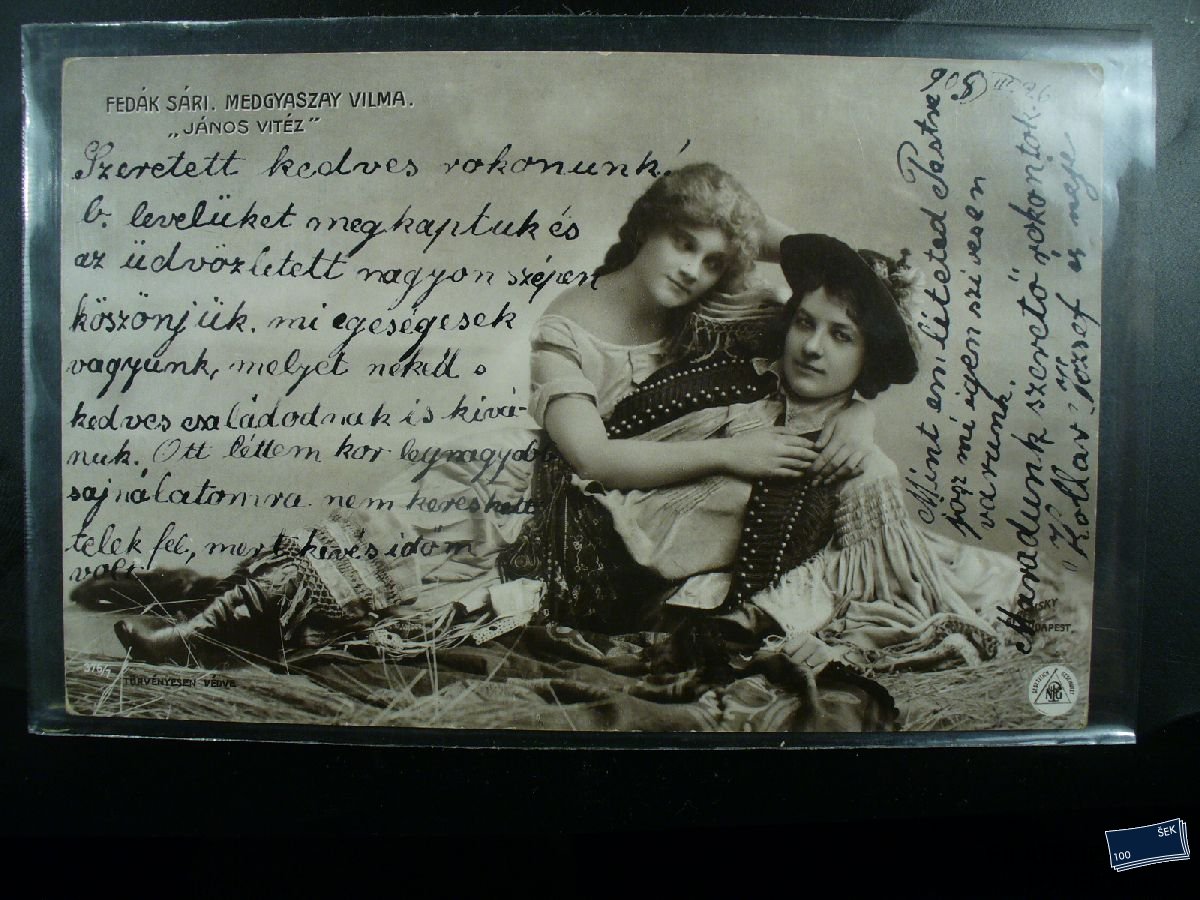 FEDÁK SÁRI. MEDGYASZAY VILMA.
„JÁNOS VITÉZ"
Szeretett kedves rokonunk!
b. levelüket megkaptuk és
az üdvözletett nagyon szépen
köszönjük. mi egeségesek
vagyunk, melyet nekül
kedves családodnak is kivá-
nuk. Ott léttem kor legnagyobb
sajnálatomra nem kereshett
telek fel, mert kevés időm
volt.
908 III 26
Mint említeted Pestre
jösz mi igen szivesen
várunk.
Maradunk szerető rokontok.
Kollar József és neje
TÖRVÉNYESEN VÉDVE
BUDAPEST.
NPG
100 ŠEK